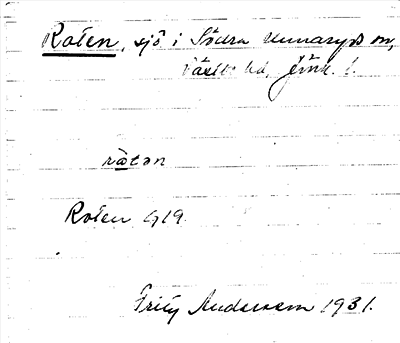 Roten, sjö i Södra Unnaryds sn,
Västbo hd, Jönk. l.
rotən
Roten G19
Fritz Andersson 1931.